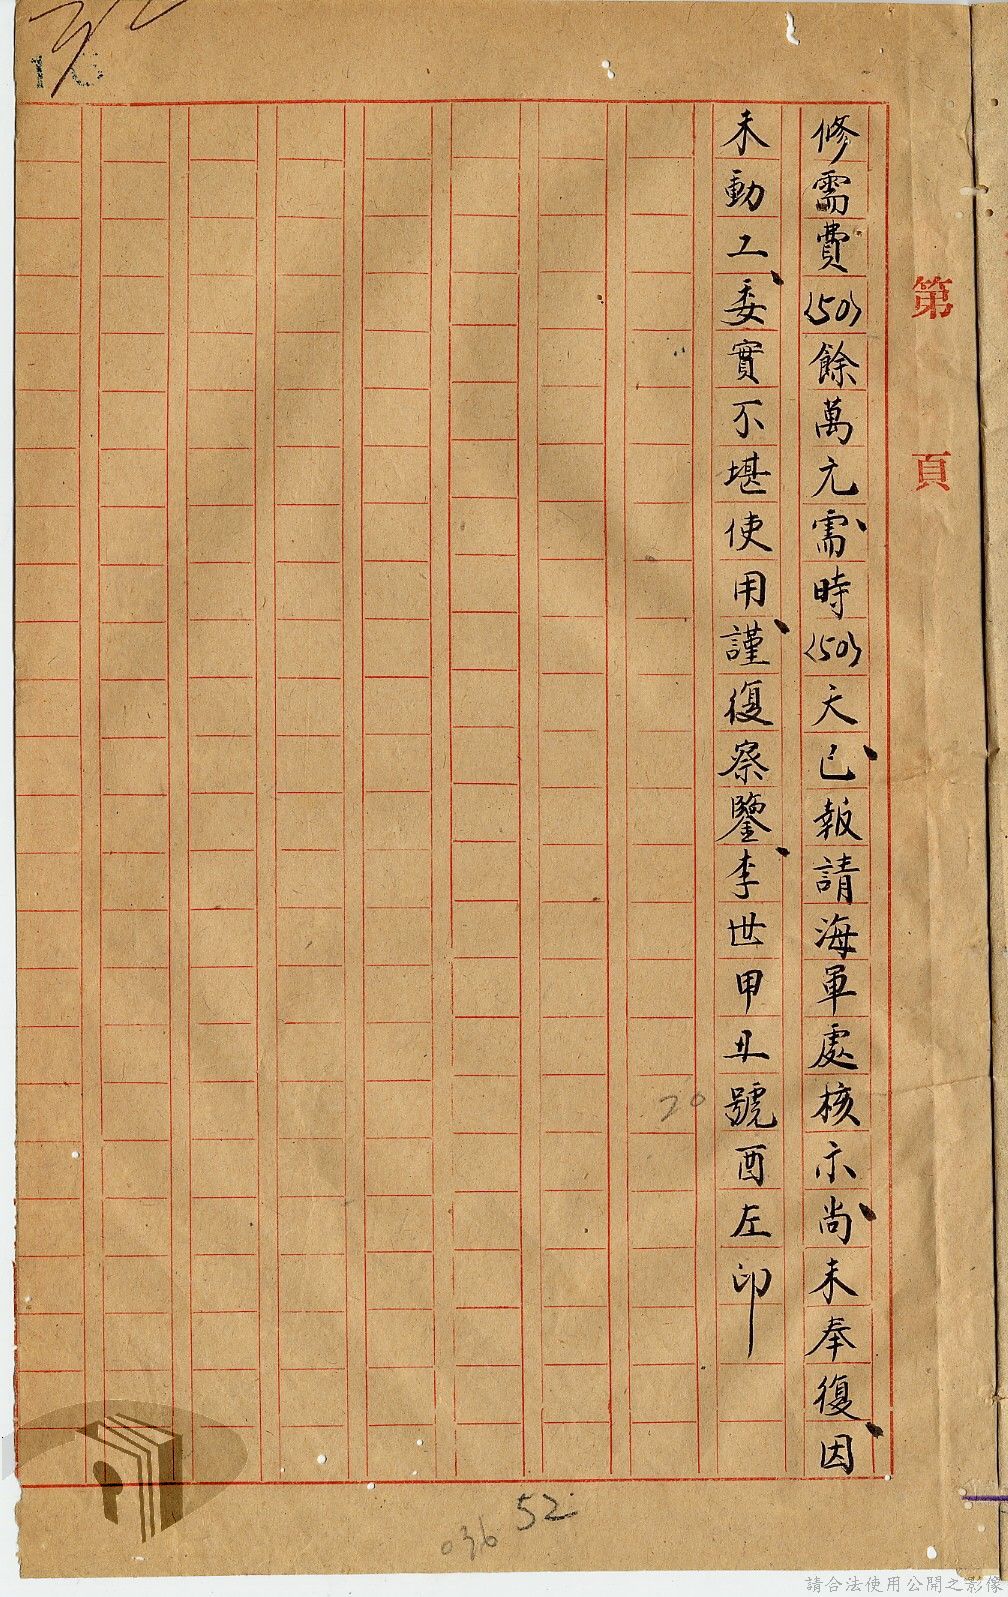 第 頁
修需費(50)餘萬元、需時(50)天、已報請海軍處核示、尚未奉復、因
未動工、委實不堪使用、謹復察鑒、李世甲丑號酉左印
20
52
036
請合法使用公開之影像